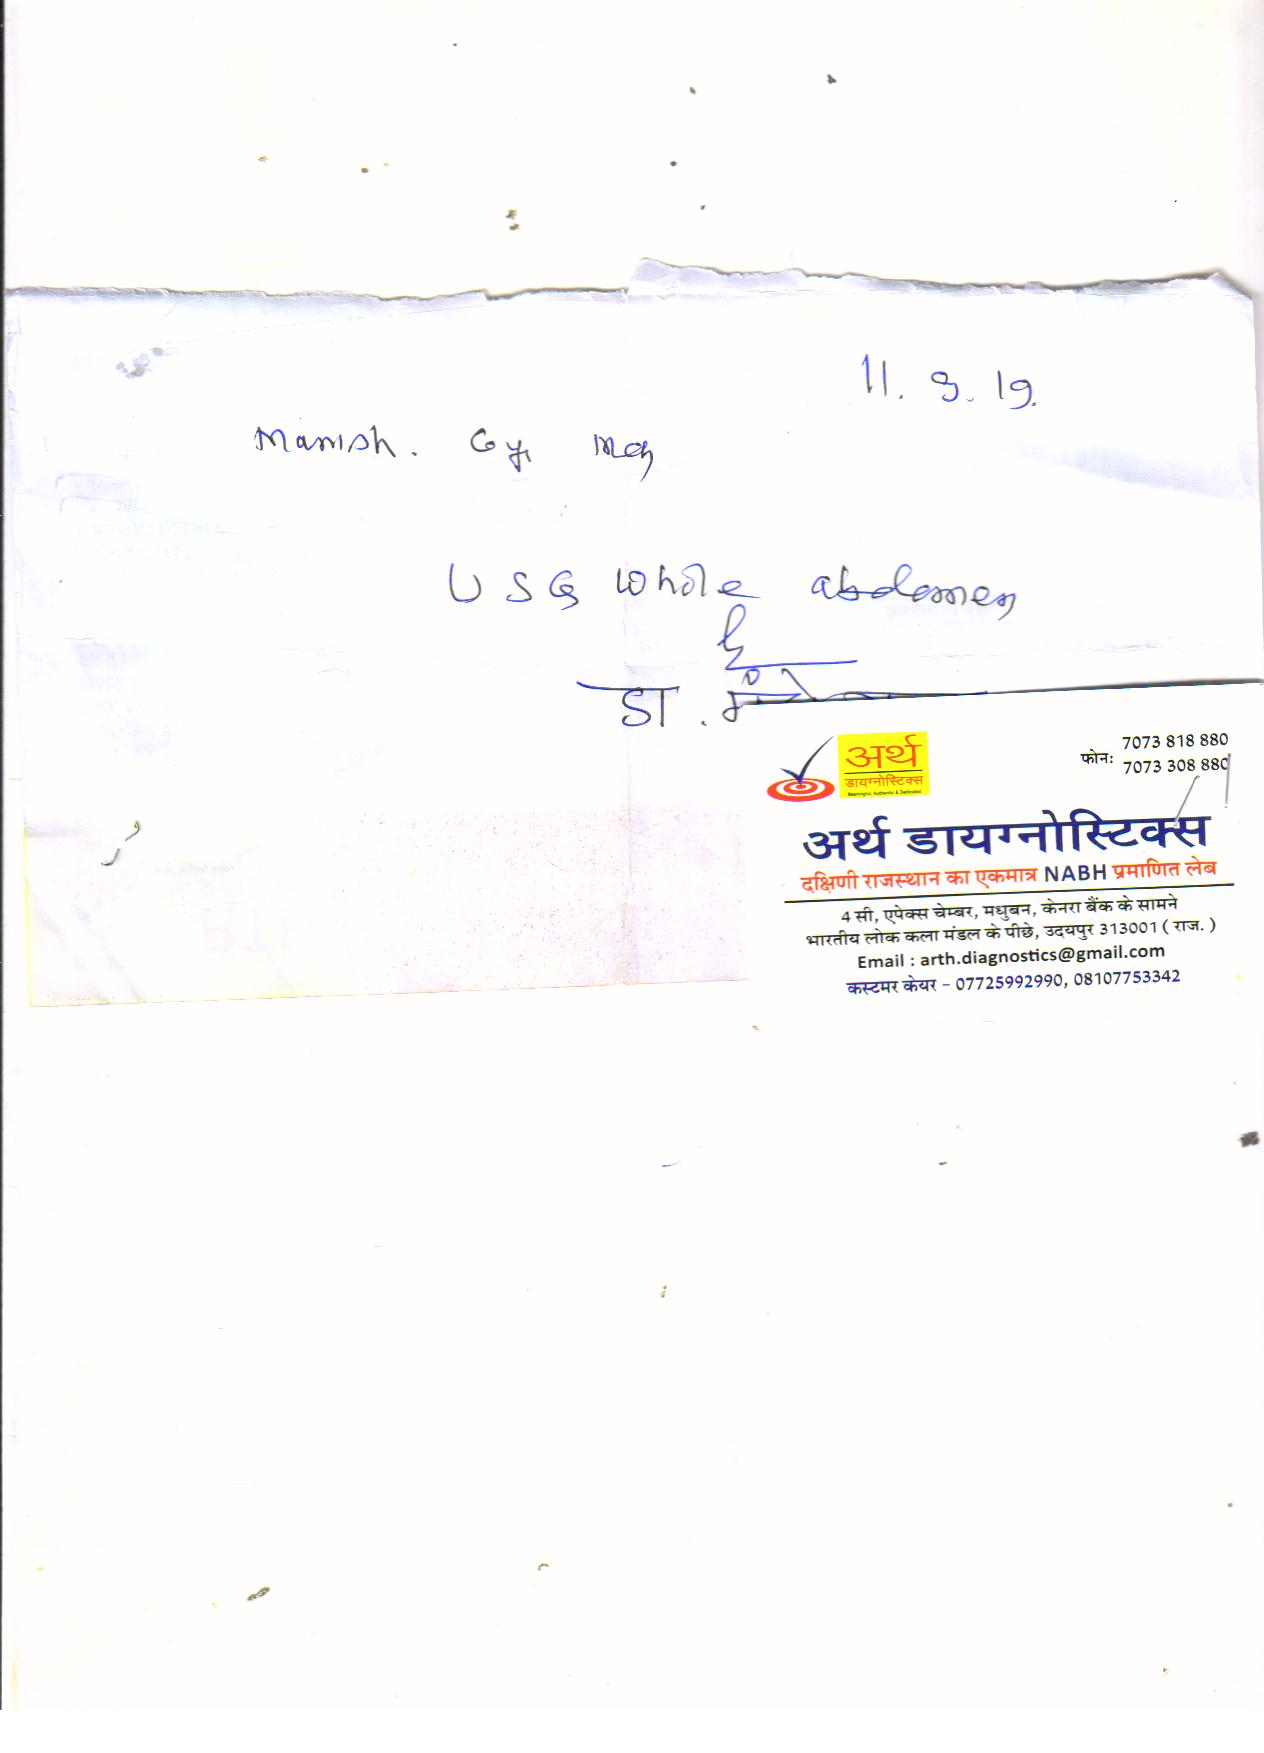 11. 9. 19.
Manish.
USG whole abdomen
डा.
अर्थ
डायग्नोस्टिक्स
Meaningful, Authentic & Dedicated
फोनः 7073 818 880
7073 308 880
अर्थ डायग्नोस्टिक्स
दक्षिणी राजस्थान का एकमात्र NABH प्रमाणित लेब
4 सी, एपेक्स चेम्बर, मधुबन, केनरा बैंक के सामने
भारतीय लोक कला मंडल के पीछे, उदयपुर 313001 ( राज. )
Email : arth.diagnostics@gmail.com
कस्टमर केयर - 07725992990, 08107753342